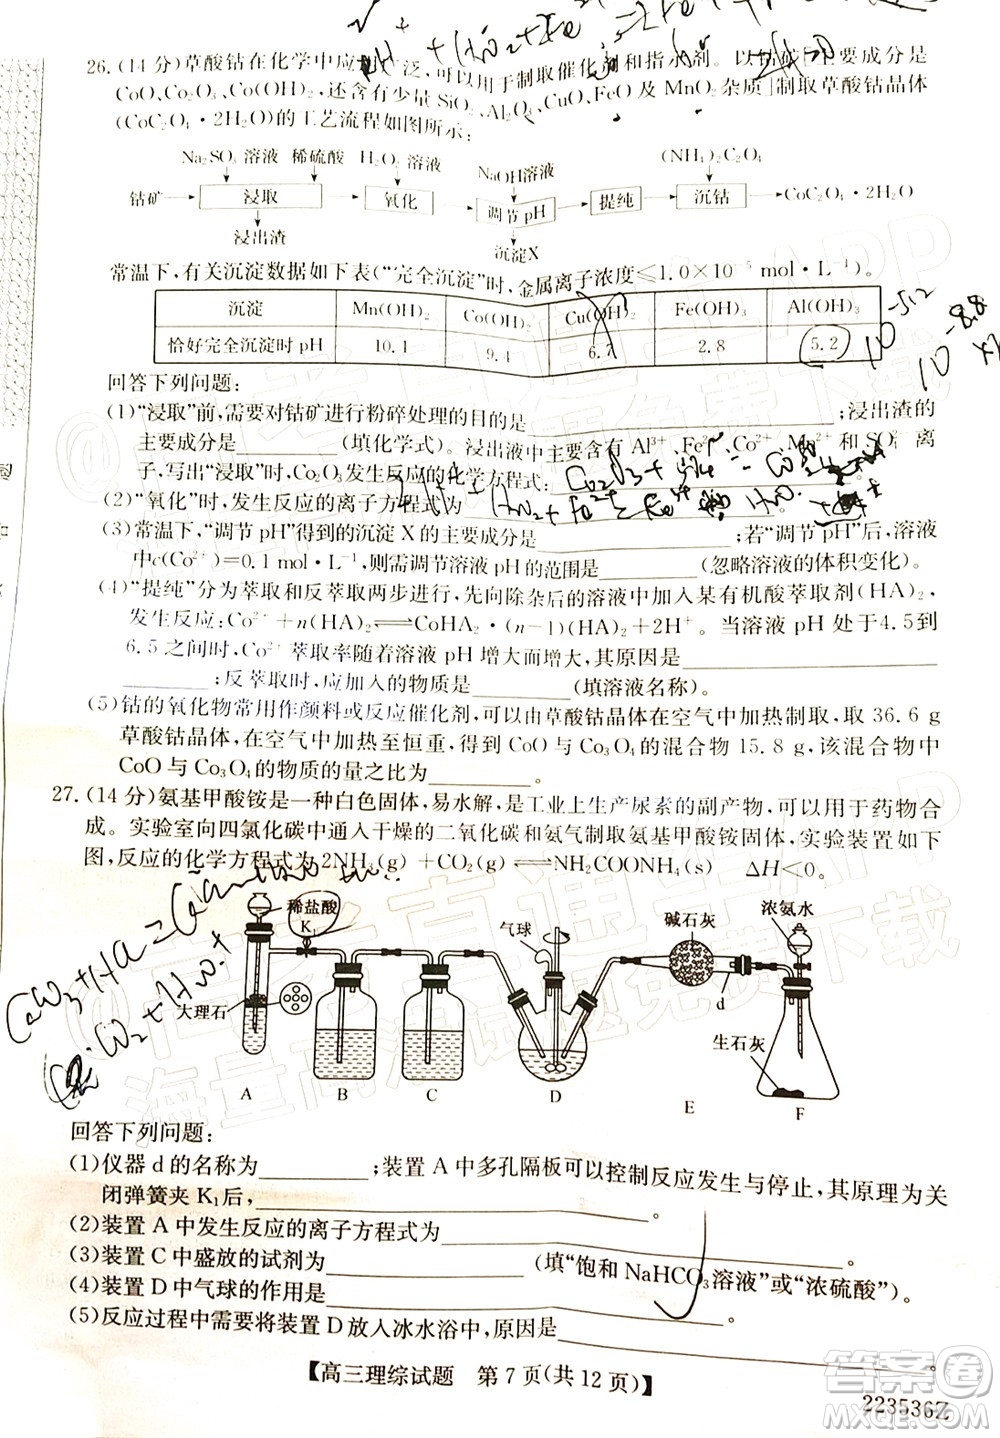 26.(14分)草酸钴在化学中应用广泛,可以用于制取催化剂和指示剂。以钴矿[主要成分是
CoO、Co₂O₃、Co(OH)₃,还含有少量SiO₂、Al₂O₃、CuO、FeO及MnO₂杂质]制取草酸钴晶体
(CoC₂O₄·2H₂O)的工艺流程如图所示:
Na₂SO₃溶液 稀硫酸 H₂O₂溶液 NaOH溶液 (NH₄)₂C₂O₄
钴矿 浸取 氧化 调节pH 提纯 沉钴 CoC₂O₄·2H₂O
浸出渣 沉淀X
常温下,有关沉淀数据如下表(“完全沉淀”时,金属离子浓度≤1.0×10⁻⁵ mol·L⁻¹)。
沉淀 Mn(OH)₂ Co(OH)₂ Cu(OH)₂ Fe(OH)₃ Al(OH)₃
恰好完全沉淀时pH 10.1 9.4 6.7 2.8 5.2
10⁻⁵·²
10⁻⁸·⁸
回答下列问题:
(1)“浸取”前,需要对钴矿进行粉碎处理的目的是;浸出渣的
主要成分是(填化学式)。浸出液中主要含有Al³⁺、Fe²⁺、Co²⁺、Mn²⁺和SO₄²⁻离
子,写出“浸取”时,Co₂O₃发生反应的化学方程式:
(2)“氧化”时,发生反应的离子方程式为
(3)常温下,“调节pH”得到的沉淀X的主要成分是;若“调节pH”后,溶液
中c(Co²⁺)=0.1 mol·L⁻¹,则需调节pH的范围是(忽略溶液的体积变化)。
(4)“提纯”分为萃取和反萃取两步进行,先向除杂后的溶液中加入某有机酸萃取剂(HA)₂,
发生反应:Co²⁺+n(HA)₂⇌CoHA₂·(n-1)(HA)₂+2H⁺。当溶液pH处于4.5到
6.5之间时,Co²⁺萃取率随着溶液pH增大而增大,其原因是
;反萃取时,应加入的物质是(填溶液名称)。
(5)钴的氧化物常用作颜料或反应催化剂,可以由草酸钴晶体在空气中加热制取,取36.6 g
草酸钴晶体,在空气中加热至恒重,得到CoO与Co₃O₄的混合物15.8 g,该混合物中
CoO与Co₃O₄的物质的量之比为。
27.(14分)氨基甲酸铵是一种白色固体,易水解,是工业上生产尿素的副产物,可以用于药物合
成。实验室向四氯化碳中通入干燥的二氧化碳和氨气制取氨基甲酸铵固体,实验装置如下
图,反应的化学方程式为2NH₃(g)+CO₂(g)⇌NH₂COONH₄(s) ΔH<0。
稀盐酸 K₁ 大理石 气球 碱石灰 d 浓氨水 生石灰
A B C D E F
回答下列问题:
(1)仪器d的名称为;装置A中多孔隔板可以控制反应发生与停止,其原理为关
闭弹簧夹K₁后,。
(2)装置A中发生反应的离子方程式为。
(3)装置C中盛放的试剂为(填“饱和NaHCO₃溶液”或“浓硫酸”)。
(4)装置D中气球的作用是。
(5)反应过程中需要将装置D放人冰水浴中,原因是
。
【高三理综试题 第7页(共12页)】
223536Z
答案圈
MXQE.COM